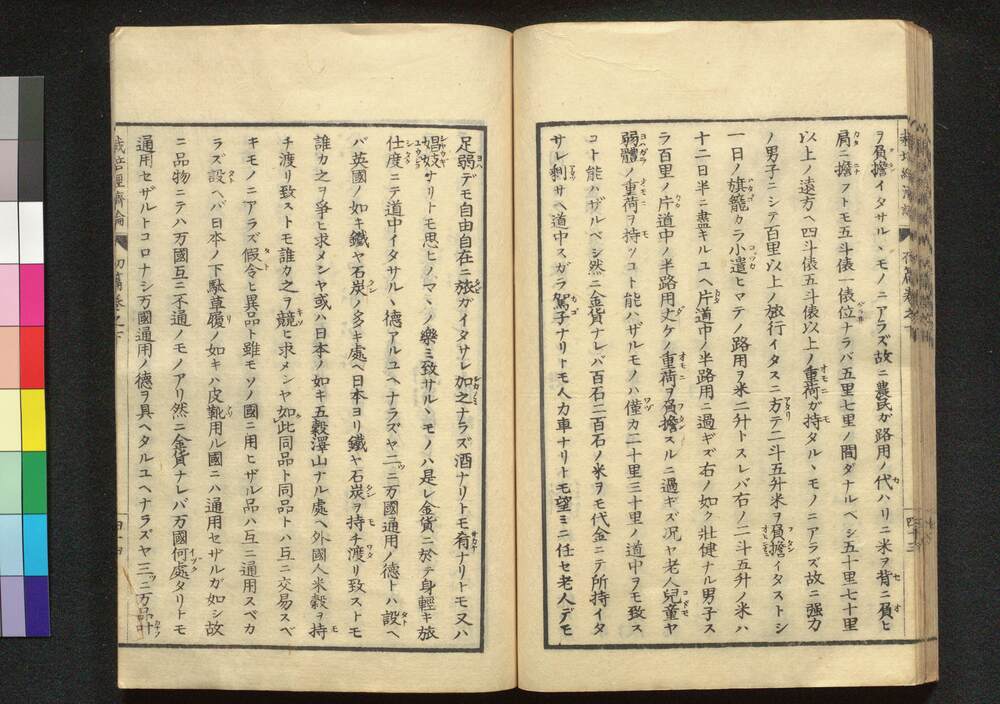 ヲ負擔イタサルヽモノニアラズ故ニ農民ガ路用ノ代ハリニ米ヲ背ニ負ヒ
肩ニ擔フトモ五斗俵一俵位ナラバ五里七里ノ間ダナルベシ五十里七十里
以上ノ遠方ヘ四斗俵五斗俵以上ノ重荷ガ持タルヽモノニアラズ故ニ强力
ノ男子ニシテ百里以上ノ旅行イタスニ方テ二斗五升米ヲ負擔イタストシ
一日ノ旗籠カラ小遣ヒマテノ路用ヲ米二升トスレバ右ノ二斗五升ノ米ハ
十二日半ニ盡キルユヘ片道中ノ半路用ニ過ギズ右ノ如ク壯健ナル男子ス
ラ百里ノ片道中ノ半路用丈ケノ重荷ヲ負擔スルニ過ギズ况ヤ老人兒童ヤ
弱體ノ重荷ヲ持ツコト能ハザルモノハ僅カ二十里三十里ノ道中ヲモ致ス
コト能ハザルベシ然ニ金貨ナレバ百石二百石ノ米ヲモ代金ニテ所持イタ
サレ剩サヘ道中スガラ駕子ナリトモ人力車ナリトモ望ミニ任セ老人デモ
足弱デモ自由自在ニ旅ガイタサレ加之ナラズ酒ナリトモ肴ナリトモ又ハ
娼妓ナリトモ思ヒノマヽノ樂ミ致サルヽモノハ是レ金貨ニ於テ身輕キ旅
仕度ニテ道中イタサルヽ德アルユヘナラズヤ二ニ万國通用ノ德トハ設ヘ
バ英國ノ如キ鐵ヤ石炭ノ多キ處ヘ日本ヨリ鐵ヤ石炭ヲ持チ渡リ致ストモ
誰カ之ヲ爭ヒ求メンヤ或ハ日本ノ如キ五穀澤山ナル處ヘ外國人米穀ヲ持
チ渡リ致ストモ誰カ之ヲ競ヒ求メンヤ如此同品ト同品トハ互ニ交易スベ
キモノニアラズ假令ヒ異品ト雖モソノ國ニ用ヒザル品ハ互ニ通用スベカ
ラズ設ヘバ日本ノ下駄草履ノ如キハ皮靴用ル國ニハ通用セザルガ如シ故
ニ品物ニテハ万國互ニ不通ノモノアリ然ニ金貨ナレバ万國何處タリトモ
通用セザルトコロナシ万國通用ノ德ヲ具ヘタルユヘナラズヤ三ニ万品叶
栽培經濟論 初篇卷之下 四十四